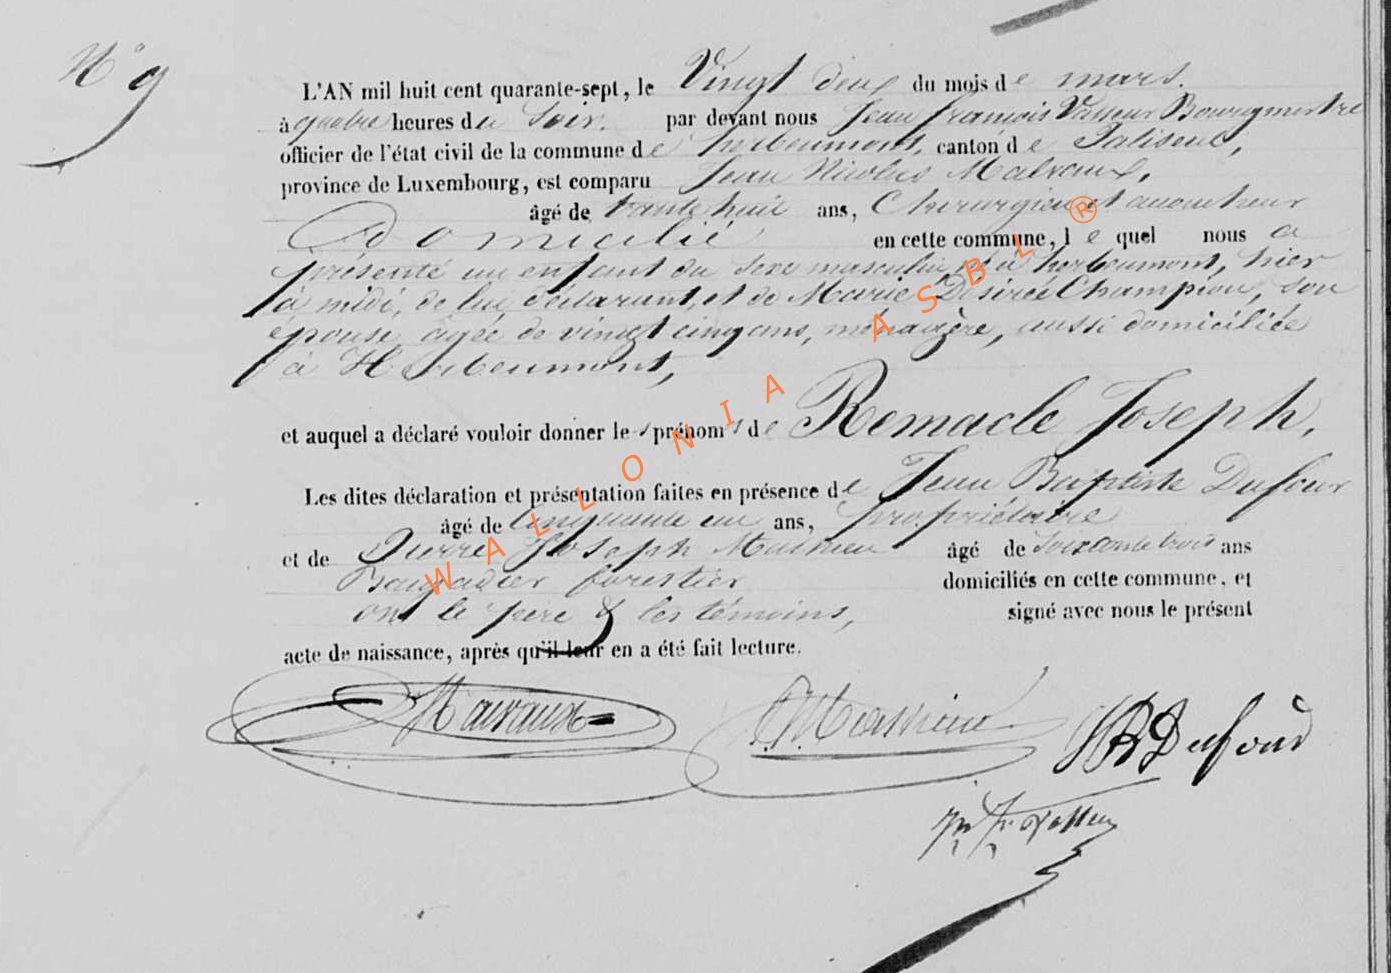 N° 9
L'AN mil huit cent quarante-sept, le Vingt deux du mois de mars.
à quatre heures du Soir. par devant nous Jean françois Vasseur Bourgmestre
officier de l'état civil de la commune de herbeumont, canton de Paliseul,
province de Luxembourg, est comparu Jean Nicolas Malvaux,
âgé de trente huit ans, Chirurgien et accoucheur
domicilié en cette commune, lequel nous a
présenté un enfant du sexe masculin né à herbeumont, hier
à midi, de lui déclarant, et de Marie Désirée Champion, son
épouse, agée de vingt cinq ans, ménagère, aussi domiciliée
à Herbeumont,
et auquel a déclaré vouloir donner les prénoms de Remacle Joseph,
Les dites déclaration et présentation faites en présence de Jean Baptiste Dufour
âgé de Cinquante un ans, propriétaire
et de Pierre Joseph Mathieu âgé de soixante trois ans
forestier domiciliés en cette commune, et
ont le père & les témoins, signé avec nous le présent
acte de naissance, après qu'il leur en a été fait lecture.
Malvaux Mathieu JBDufour
WALLONIA ASBL ®